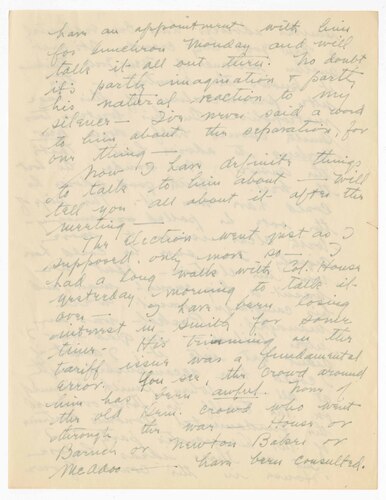 have an appointment with him
for luncheon Monday and will
talk it all out then. No doubt
it's partly imagination & partly
his natural reaction to my
silence — I've never said a word
to him about the separation, for
one thing —
Now I have definite things
to talk to him about — Will
tell you all about it after the
meeting —
The election went just as I
supposed only more so — I
had a long walk with Col. House
yesterday morning to talk it
over — I have been losing
interest in Smith for some
time. His trimming on the
tariff issue was a fundamental
error. You see, the crowd around
him has been awful. None of
the old Dem. crowd who went
through the war — House or
Baruch or Newton Baker or
McAdoo — have been consulted.